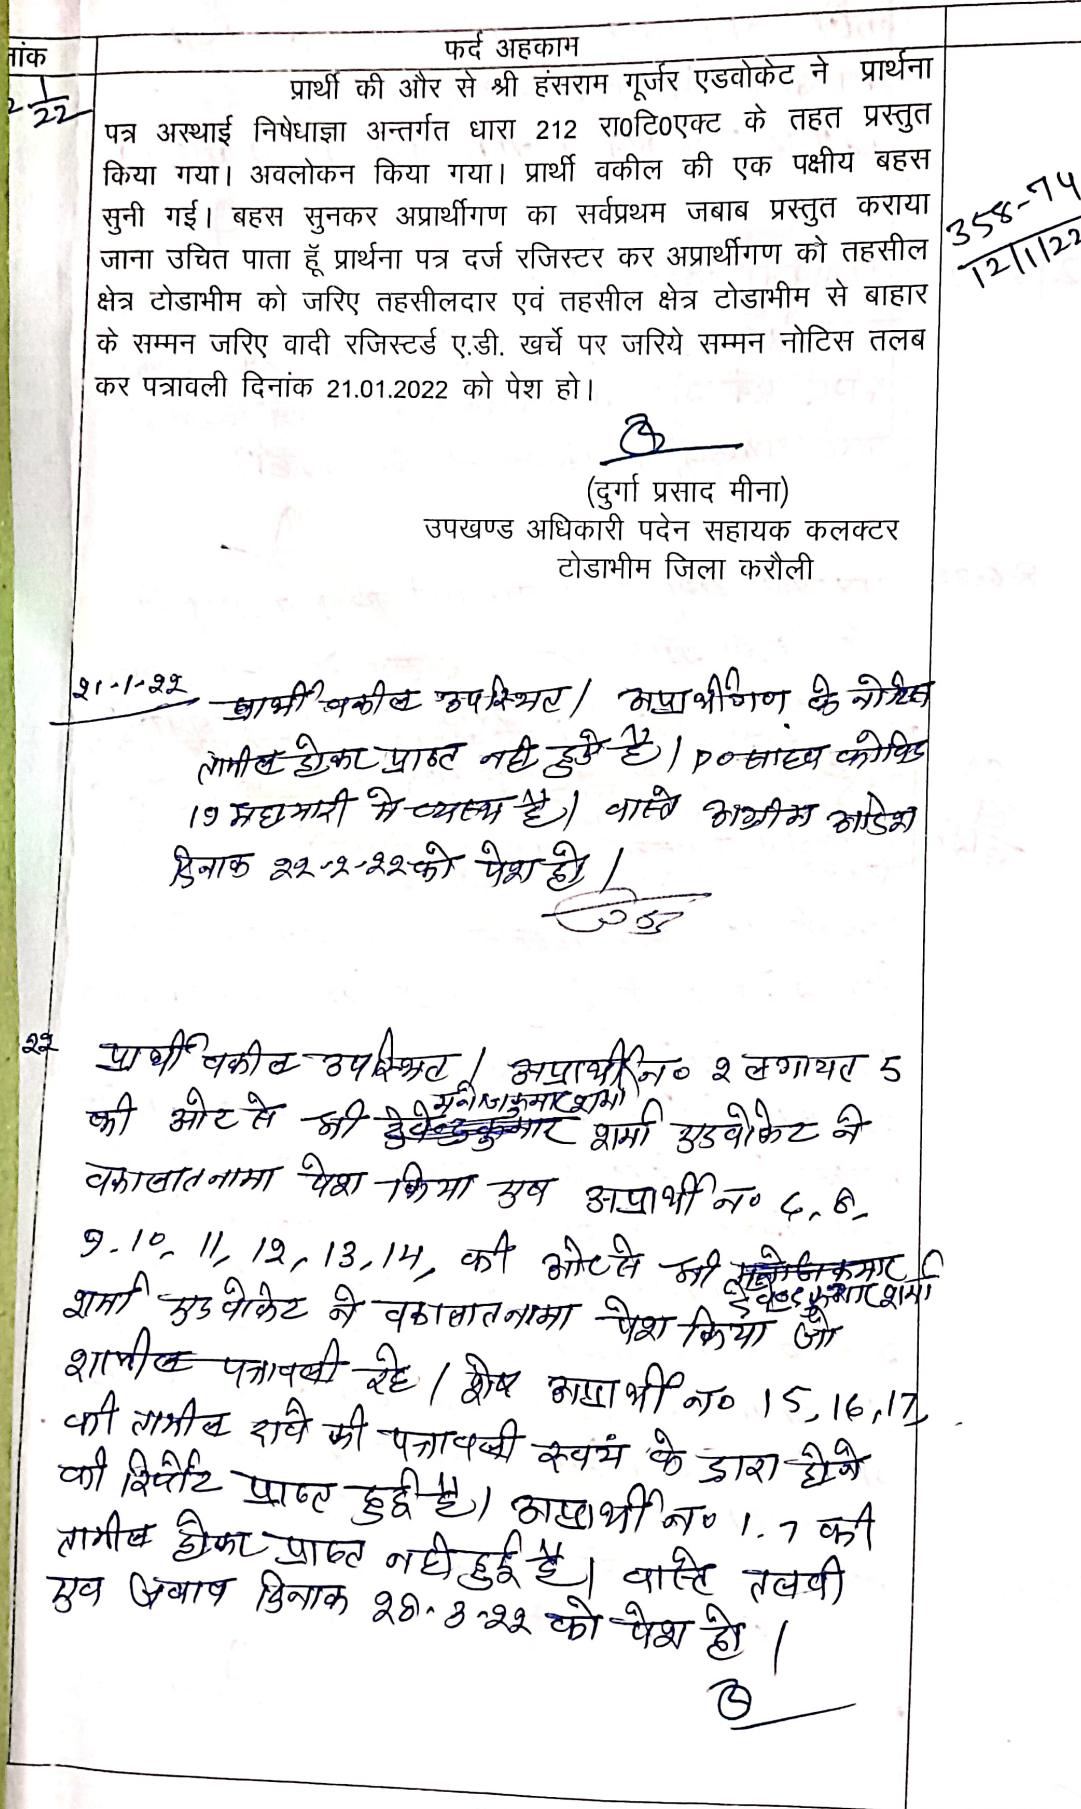 फर्द अहकाम
नांक
प्रार्थी की और से श्री हंसराम गूर्जर एडवोकेट ने प्रार्थना
2 1/22
पत्र अस्थाई निषेधाज्ञा अन्तर्गत धारा 212 रा0टि0एक्ट के तहत प्रस्तुत
किया गया। अवलोकन किया गया। प्रार्थी वकील की एक पक्षीय बहस
सुनी गई। बहस सुनकर अप्रार्थीगण का सर्वप्रथम जबाब प्रस्तुत कराया
जाना उचित पाता हूॅं प्रार्थना पत्र दर्ज रजिस्टर कर अप्रार्थीगण को तहसील
क्षेत्र टोडाभीम को जरिए तहसीलदार एवं तहसील क्षेत्र टोडाभीम से बाहार
के सम्मन जरिए वादी रजिस्टर्ड ए.डी. खर्चे पर जरिये सम्मन नोटिस तलब
कर पत्रावली दिनांक 21.01.2022 को पेश हो।
358-74
12/1/22
(दुर्गा प्रसाद मीना)
उपखण्ड अधिकारी पदेन सहायक कलक्टर
टोडाभीम जिला करौली
२१-१-२२ प्रार्थी वकील उपस्थित। अप्रार्थीगण के नोटिस
तामील होकर प्राप्त नही हुऐ है। PO साहब कोविड
19 महामारी मे व्यस्थ है। वास्ते अग्रीम आदेश
दिनाक २२-२-२२ को पेश हो।
२२ प्रार्थी वकील उपस्थित। अप्रार्थी न० २ लगायत 5
मनोजकुमार शर्मा
की ओर से श्री देवेन्द्रकुमार शर्मा एडवोकेट ने
वकालातनामा पेश किया एव अप्रार्थी न० ८, 8,
9, 10, 11, 12, 13, 14, की ओर से श्री मनोजकुमार
देवेन्द्र कुमार शर्मा
शर्मा एडवोकेट ने वकालातनामा पेश किया जो
शामील पत्रावली रहे। शेष अप्रार्थी न० 15, 16, 17,
की तामील की पत्रावली स्वयं के द्वारा होने
की रिर्पोट प्राप्त हुई है। अप्रार्थी न० 1, 7 की
तामील होकर प्राप्त नही हुई है। वास्ते तलवी
एव जबाव दिनाक २8-3-२२ को पेश हो।